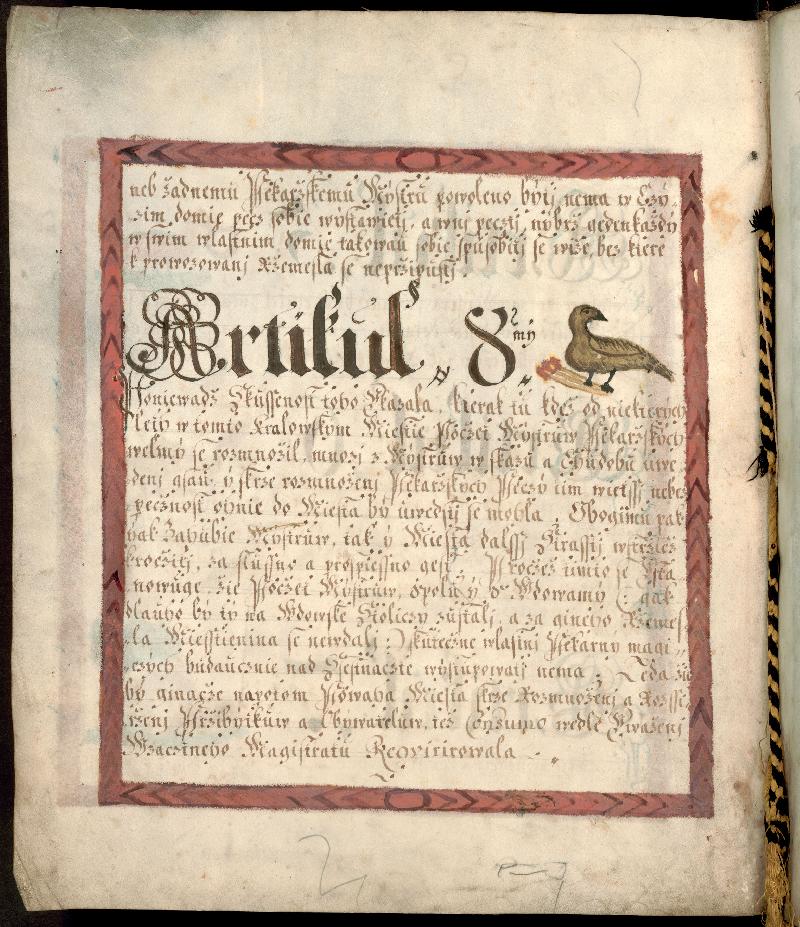 neb žadnemu Pekařzskemu Mystru powoleno bytj nema w Czÿ-
zim domie pecz sobie wystawietj, a wnj pecztj, nÿbrž gedenkaždÿ
w swim wlastnim domie takowau sobie spusobitj se wiže, bez ktere
k prowozowanj Ržemesla se nepržipustj.
Artikul 8mÿ
Poniewadž Skussenost toho Ukazala, kterak tu kdež od niekterych
Leth w tomto Kralowskym Miestie Poczet Mystruw Pekaržskych
welmÿ se rozmnožil, mnozj z Mystruw w skazu a Chudobu uwe-
denj gsau, ÿ skrze rozmnoženj Pekaržskych Peczÿ tim wietssj nebez-
pecznost ohnie do Miesta bÿ uwedsti se mohla, Obogimu pak
pak Zahubie Mystruw, tak ÿ Miesta dalssj Strassti wstržicz
kroczitj, za slussno a prospiessno gest, Procžež timto se Usta-
nowuge, že Poczet Mystruw, spolu ÿ s Wdowamÿ (: gak
dlauho bÿ tÿ na Wdowske Stoliczÿ zustalj, a za gineho Ržemes-
la Miesstienina se newdalj :) skuteczne wlastnj Pekarnÿ magi-
czych budaucznie nad Ssestnaczte wystupowati nema, Leda žie
bÿ ginacže napotom Powaha Miesta skrze Rozmnoženj a Rozssi-
rženj Pržibÿtkuw a Obÿwateluw, tež Consumo wedle Uwaženj
Wzaczneho Magistratu Requirirowala.